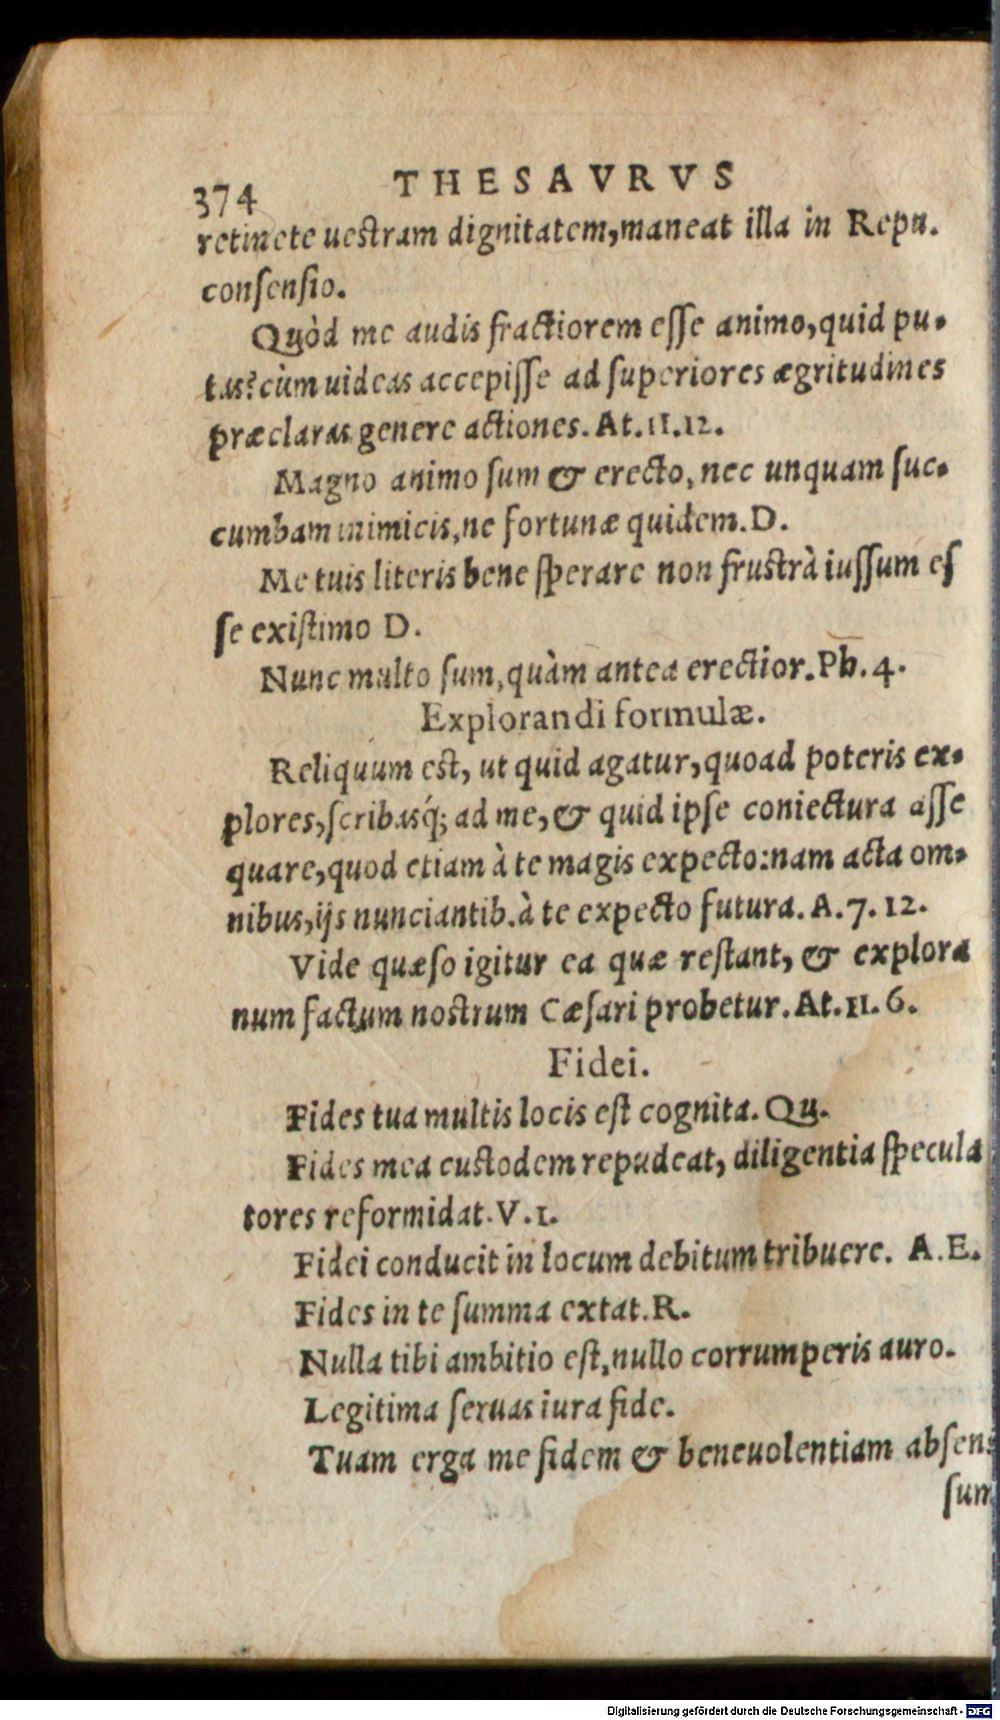 374 THESAVRVS
retinete uestram dignitatem, maneat illa in Repu.
consensio.
Quòd me audis fractiorem esse animo, quid pu-
tas? cùm uideas accepisse ad superiores ægritudines
præclaras genere actiones. At. 11. 12.
Magno animo sum & erecto, nec unquam suc-
cumbam inimicis, ne fortunæ quidem. D.
Me tuis literis bene sperare non frustrà iussum es
se existimo D.
Nunc multo sum, quàm antea erectior. Ph. 4.
Explorandi formulæ.
Reliquum est, ut quid agatur, quoad poteris ex-
plores, scribasq́; ad me, & quid ipse coniectura asse
quare, quod etiam à te magis expecto: nam acta om-
nibus, ijs nunciantib. à te expecto futura. A. 7. 12.
Vide quæso igitur ea quæ restant, & explora
num factum nostrum Cæsari probetur. At. 11. 6.
Fidei.
Fides tua multis locis est cognita. Qu.
Fides mea custodem repudeat, diligentia specula
tores reformidat. V. 1.
Fidei conducit in locum debitum tribuere. A. E.
Fides in te summa extat. R.
Nulla tibi ambitio est, nullo corrumperis auro.
Legitima seruas iura fide.
Tuam erga me fidem & beneuolentiam absens
sum
Digitalisierung gefördert durch die Deutsche Forschungsgemeinschaft - DFG